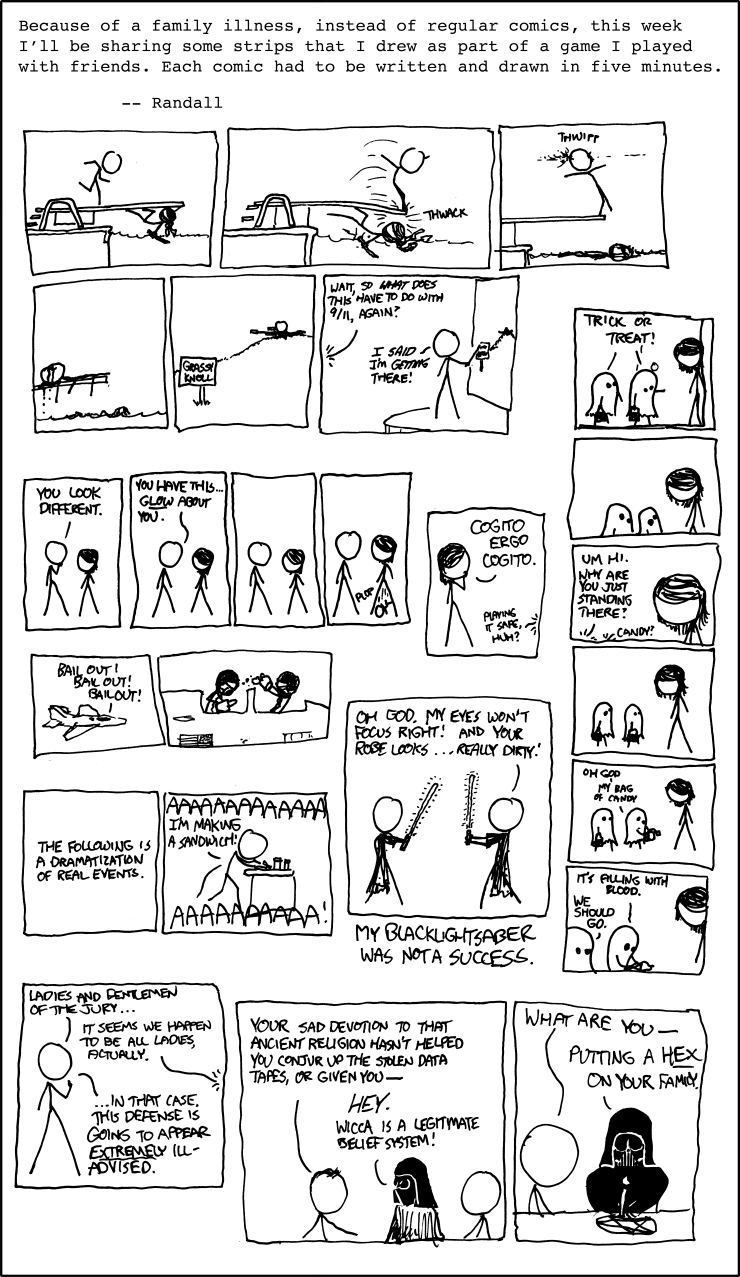 Because of a family illness, instead of regular comics, this week
I'll be sharing some strips that I drew as part of a game I played
with friends. Each comic had to be written and drawn in five minutes.
-- Randall
THWACK
THWIPP
GRASSY
KNOLL
WAIT, SO WHAT DOES
THIS HAVE TO DO WITH
9/11, AGAIN?
I SAID
I'M GETTING
THERE!
TRICK OR
TREAT!
UM HI.
WHY ARE
YOU JUST
STANDING
THERE?
CANDY?
OH GOD
MY BAG
OF CANDY
IT'S FILLING WITH
BLOOD.
WE
SHOULD
GO.
YOU LOOK
DIFFERENT.
YOU HAVE THIS...
GLOW ABOUT
YOU.
PLOP
COGITO
ERGO
COGITO.
PLAYING
IT SAFE,
HUH?
BAIL OUT!
BAIL OUT!
BAILOUT!
OH GOD. MY EYES WON'T
FOCUS RIGHT! AND YOUR
ROBE LOOKS ... REALLY DIRTY.'
MY BLACKLIGHTSABER
WAS NOT A SUCCESS.
THE FOLLOWING IS
A DRAMATIZATION
OF REAL EVENTS.
AAAAAAAAAAAAA
I'M MAKING
A SANDWICH!
AAAAAAAAAA!
LADIES AND GENTLEMEN
OF THE JURY...
IT SEEMS WE HAPPEN
TO BE ALL LADIES,
ACTUALLY.
...IN THAT CASE,
THIS DEFENSE IS
GOING TO APPEAR
EXTREMELY ILL-
ADVISED.
YOUR SAD DEVOTION TO THAT
ANCIENT RELIGION HASN'T HELPED
YOU CONJUR UP THE STOLEN DATA
TAPES, OR GIVEN YOU—
HEY.
WICCA IS A LEGITMATE
BELIEF SYSTEM!
WHAT ARE YOU—
PUTTING A HEX
ON YOUR FAMILY.